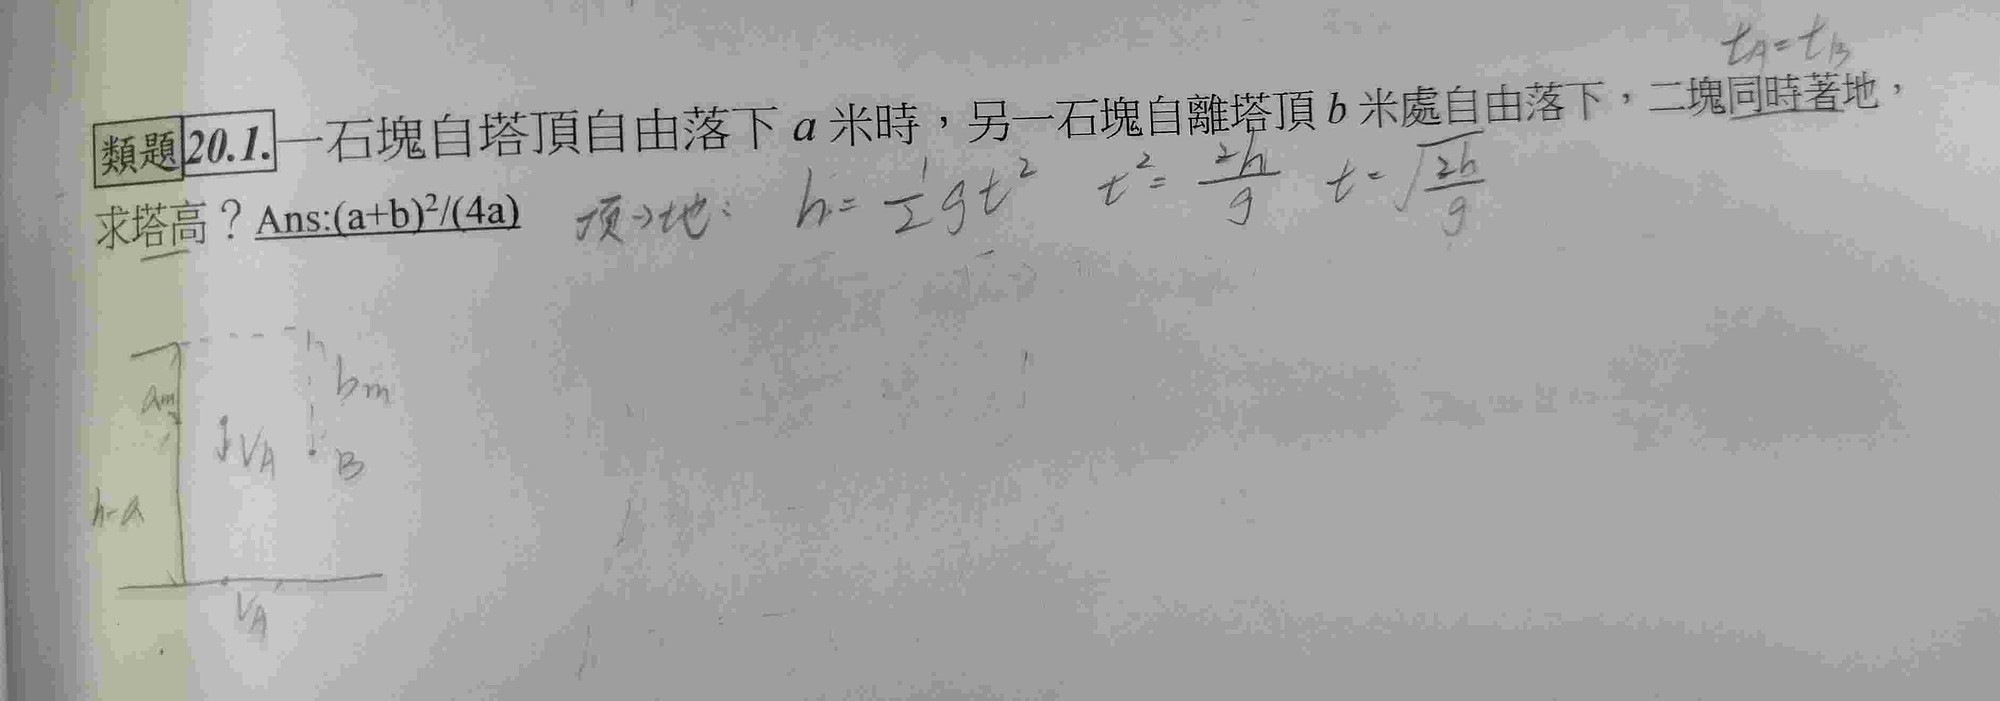 tA=tB
類題 20.1. 一石塊自塔頂自由落下 a 米時，另一石塊自離塔頂 b 米處自由落下，二塊同時著地，
求塔高？Ans:(a+b)²/(4a) 頂→地： h = 1/2 gt² t² = 2h/g t = √(2h/g)
am
bm
VA
B
h-a
VA